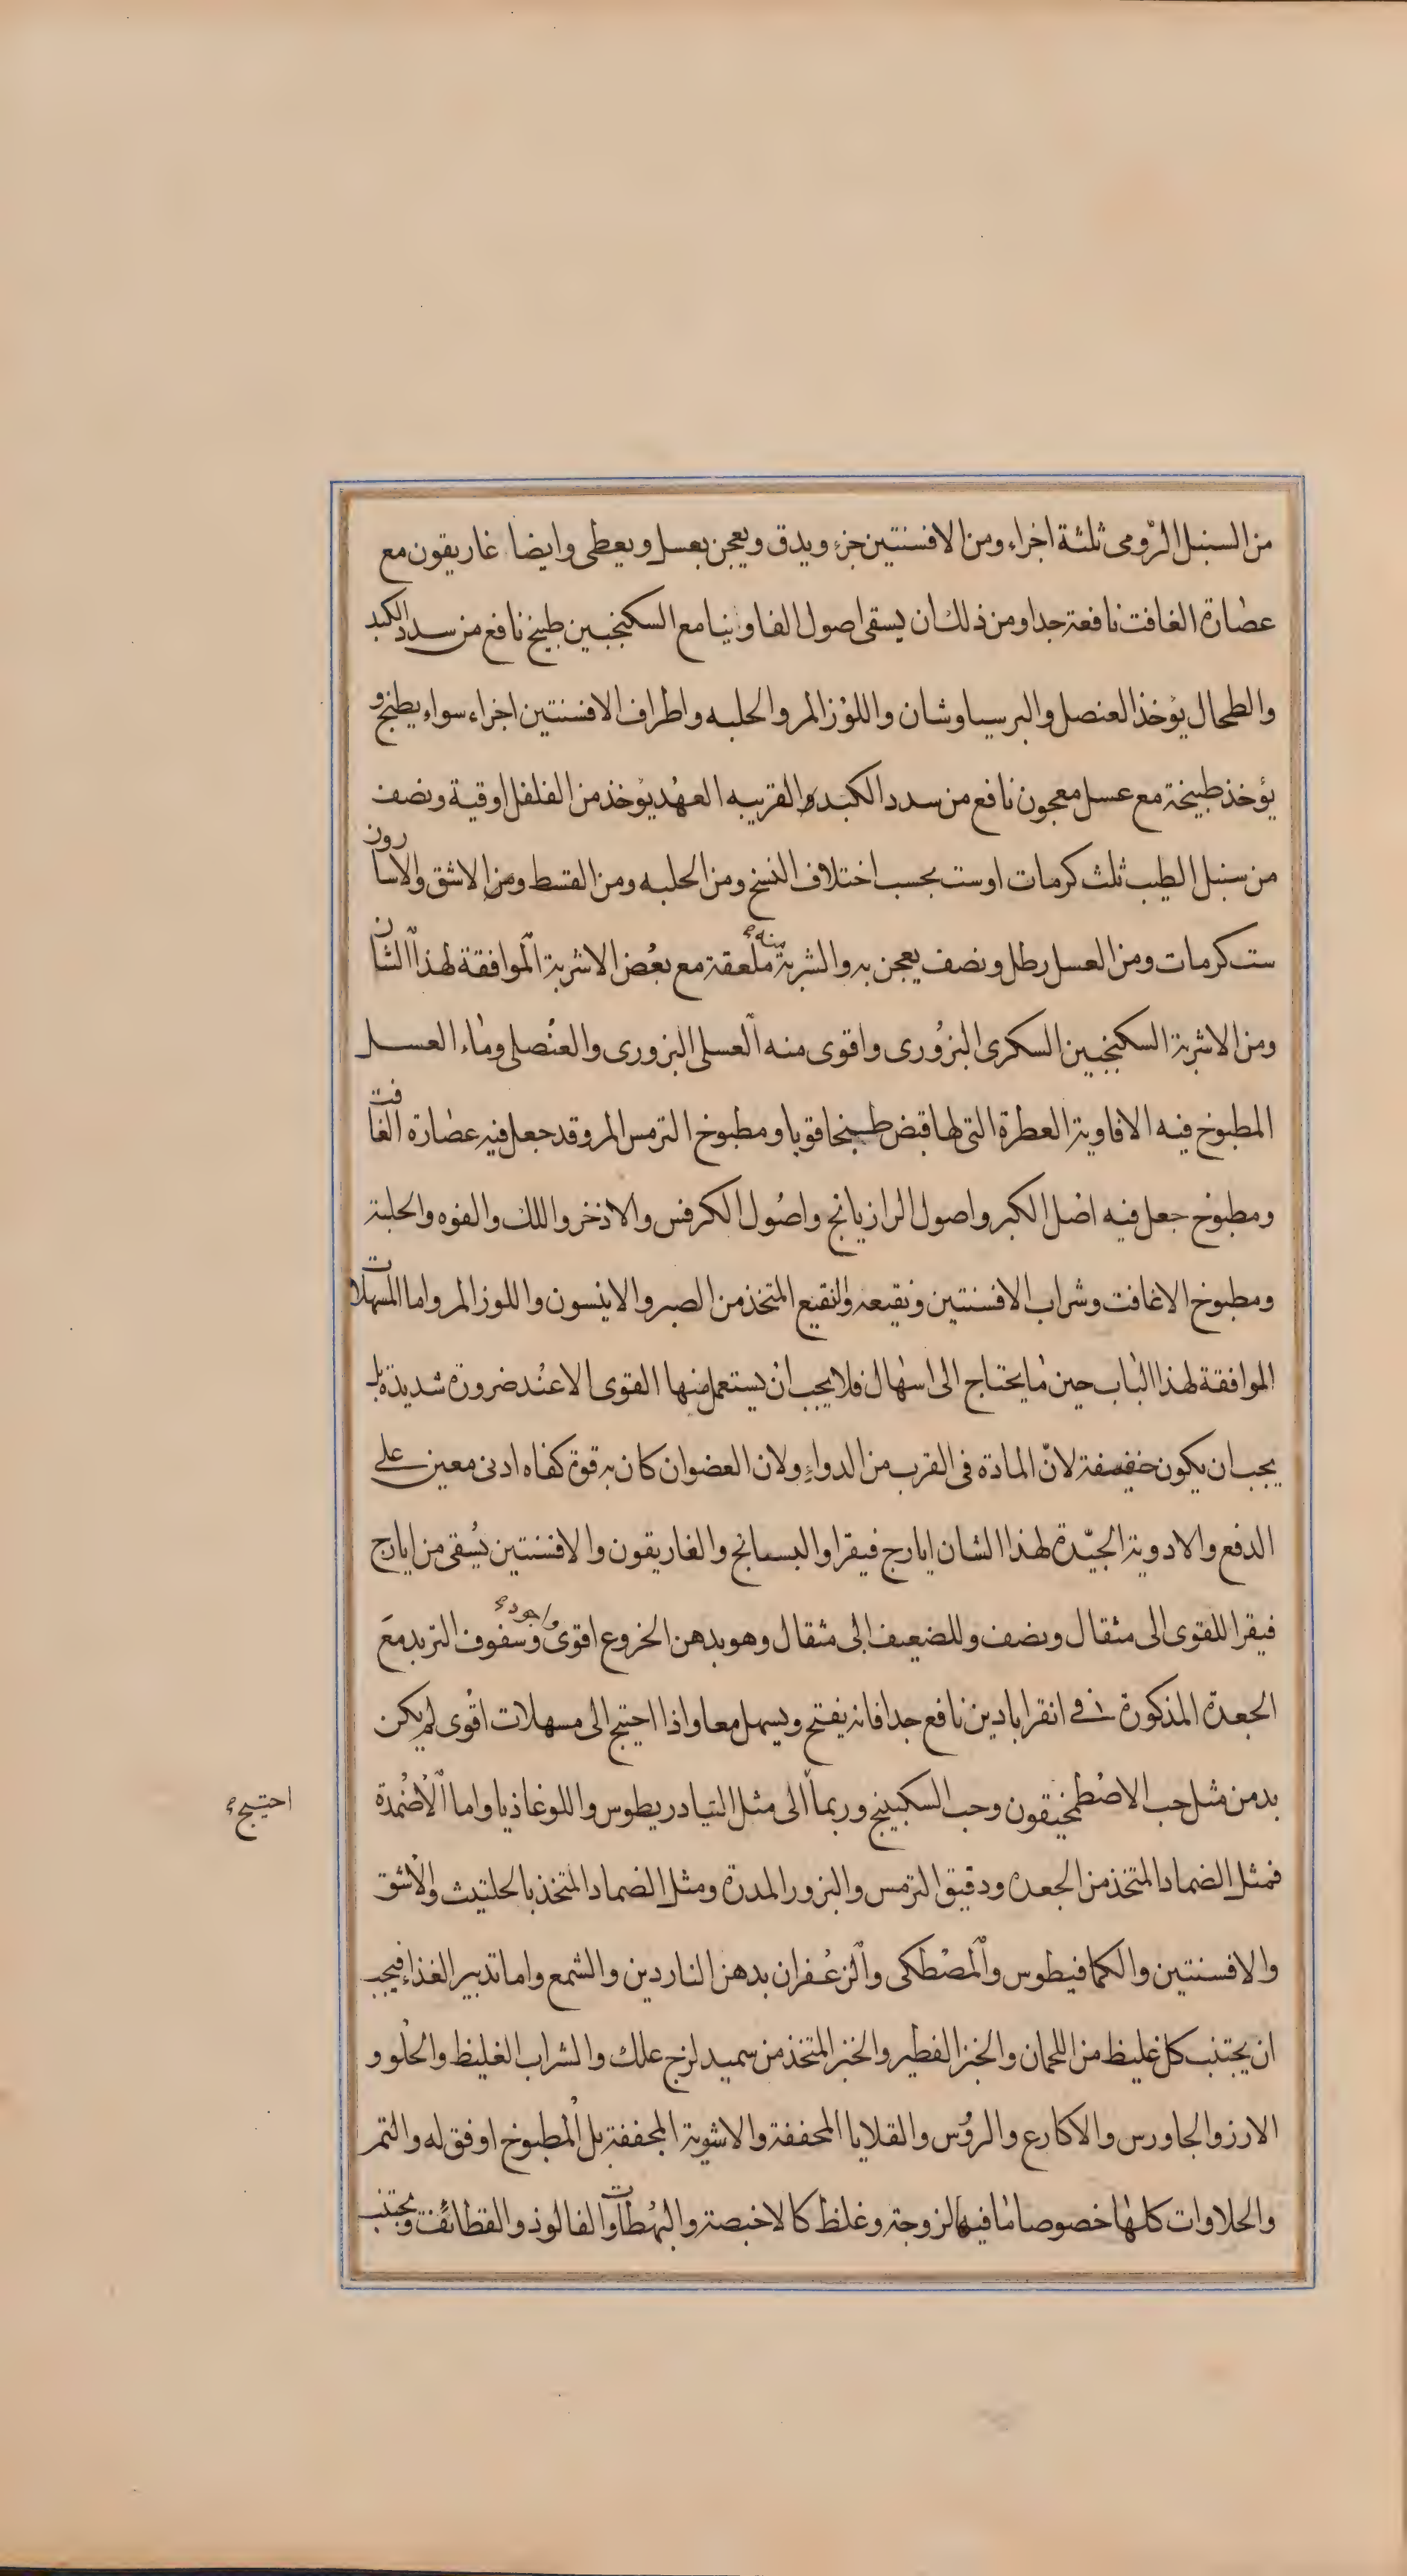 من السنبل الرّومى ثلثة اجزاء ومن الافسنتين جزء ويدق ويعجن بعسل ويعطى وايضا غاريقون مع
عصارة الغافت نافعة جدا ومن ذلك ان يسقى اصول الفاوينا مع السكنجبين طبيخ نافع من سدد الكبد
والطحال يؤخذ العنصل والبرسياوشان واللوز المر والحلبه واطراف الافسنتين اجزاء سواء يطبخ و
يؤخذ طبيخة مع عسل معجون نافع من سدد الكبد والقريبه العهد يؤخذ من الفلفل اوقية ونصف
من سنبل الطيب ثلث كرمات اوست بحسب اختلاف النسخ ومن الحلبه ومن القسط ومن الاشق والاسارون
ست كرمات ومن العسل رطل ونصف يعجن به والشربة منه ملعقة مع بعض الاشربة الموافقة لهذا الشان
ومن الاشربة السكنجبين السكرى البزورى واقوى منه العسلى البزورى والعنصلى وماء العسل
المطبوخ فيه الافاوية العطرة التى لها قبض طبيخا قويا ومطبوخ الترمس المر وقد جعل فيه عصارة الغافت
ومطبوخ جعل فيه اصل الكبر واصول الرازيانج واصول الكرفس والاذخر واللك والفوه والحلبة
ومطبوخ الاغافت وشراب الافسنتين ونقيعه والنقيع المتخذ من الصبر والانيسون واللوز المر واما المسهلات
الموافقة لهذا الباب حين ما يحتاج الى اسهال فلا يجب ان يستعمل منها القوى الا عند ضرورة شديدة بل
يجب ان يكون خفيفة لانّ المادة فى القرب من الدواء ولان العضو ان كان به قوة كفاه ادنى معين على
الدفع والادوية الجيّدة لهذا الشان ايارج فيقرا والبسفانج والغاريقون والافسنتين يسقى من ايارج
فيقرا للقوى الى مثقال ونصف وللضعيف الى مثقال وهو بدهن الخروع اقوى واجود وسفوف التربد مع
الجعدة المذكورة فى انقراباذين نافع جدا فانه يفتح ويسهل معا واذا احتيج الى مسهلات اقوى لم يكن
بد من مثل حب الاصطمخيقون وحب السكبينج وربما الى مثل التيادريطوس واللوغاذيا واما الاضمدة
احتيج
فمثل الضماد المتخذ من الجعده ودقيق الترمس والبزور المدرة ومثل الضماد المتخذ بالحلتيث والاشق
والافسنتين والكمافيطوس والمصطكى والزعفران بدهن الناردين والشمع واما تدبير الغذاء فيجب
ان يجتنب كل غليظ من اللحمان والخبز الفطير والخبز المتخذ من سميد لزج علك والشراب الغليظ والحلو و
الارز والجاورس والاكارع والرؤس والقلايا المجففة والاشوية المجففة بل المطبوخ اوفق له والتمر
والحلاوات كلها خصوصا ما فيها لزوجة وغلظ كالاخبصة والبهطات والفالوذ والقطائف ويجتنب